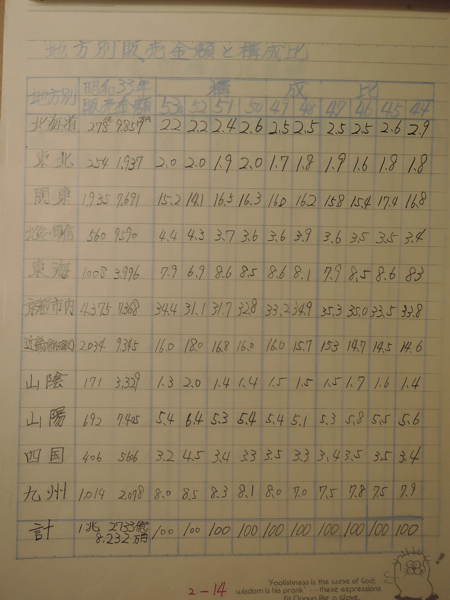 地方別販売金額と構成比
地方別 昭和53年 構成比
販売金額 53 52 51 50 49 48 47 46 45 44
北海道 278億 9,859万 2.2 2.2 2.4 2.6 2.5 2.5 2.5 2.5 2.6 2.9
東北 254 1,937 2.0 2.0 1.9 2.0 1.7 1.8 1.9 1.6 1.8 1.8
関東 1,935 7,691 15.2 14.1 16.5 16.3 16.0 16.2 15.8 15.4 17.4 16.8
560 9,590 4.4 4.3 3.7 3.6 3.6 3.9 3.6 3.5 3.5 3.4
東海 1,008 3,996 7.9 6.9 8.6 8.5 8.6 8.1 7.9 8.5 8.6 8.3
京都市内 4,375 7,368 34.4 31.1 31.7 32.8 33.2 34.9 35.3 35.0 33.5 33.8
近畿 2,034 9,345 16.0 18.0 16.8 16.0 16.0 15.7 15.3 14.7 14.5 14.6
山陰 171 3,329 1.3 2.0 1.4 1.4 1.5 1.5 1.5 1.7 1.6 1.4
山陽 692 7,405 5.4 6.4 5.3 5.4 5.4 5.1 5.3 5.8 5.5 5.6
四国 406 566 3.2 4.5 3.4 3.3 3.5 3.3 3.4 3.5 3.5 3.4
九州 1,014 2,078 8.0 8.5 8.3 8.1 8.0 7.0 7.5 7.8 7.5 7.9
計 1兆 2,733億 100 100 100 100 100 100 100 100 100 100
8,232万円
2-14
Foolishness is the curse of God;
wisdom is his prank these expressions
fit Ququn like a glove.